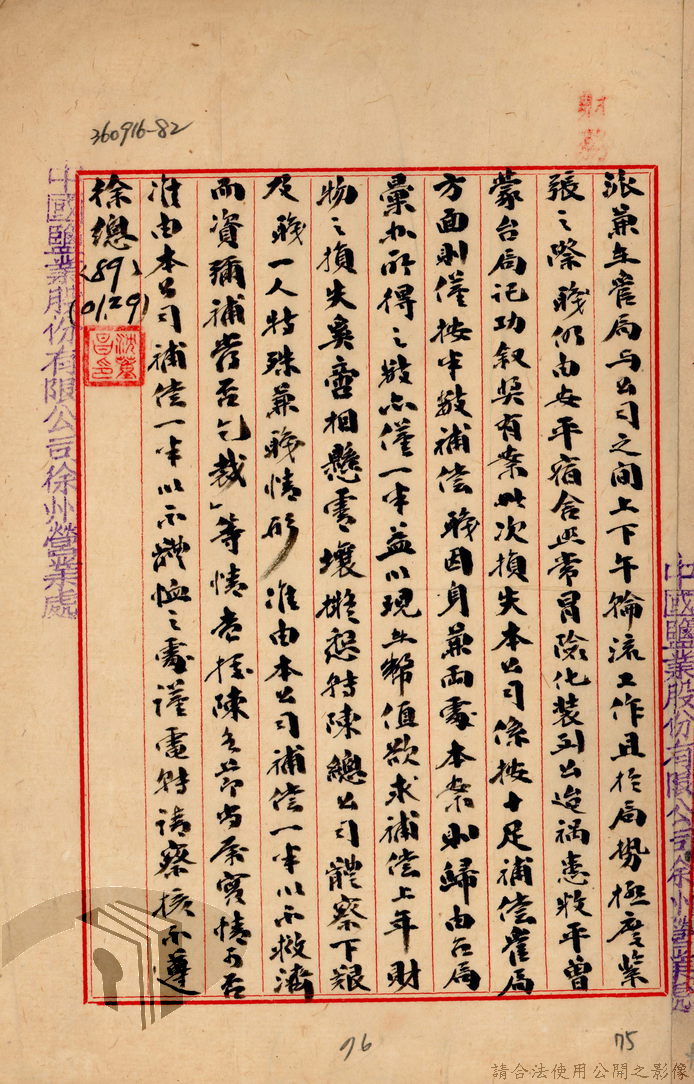 360916-82
派兼在鹽局与公司之间上下午輪流工作且於局勢極度紧
張之際職仍由安平宿舍照常冒險化装到公迨禍患牧平曾
蒙台局记功叙奖有案此次損失本公司係按十足補偿鹽局
方面則僅按半數補偿職因身兼両處本案則歸由台局
彙办所得之數亦僅一半益以現在幣值欲求補偿上年財
物之損失奚啻相懸霄壤擬恳轉陳總公司體察下艱
及職一人特殊兼職情形准由本公司補偿一半以示救濟
而資彌補當否乞裁」等情查程陳各節尚属實情可否
准由本公司補偿一半以示體恤之處謹電轉请察核示遵
徐總(89)
(01.29)
沈蕫昌印
中國鹽業股份有限公司徐州營業處
中國鹽業股份有限公司徐州營業處
財
76
75
請合法使用公開之影像